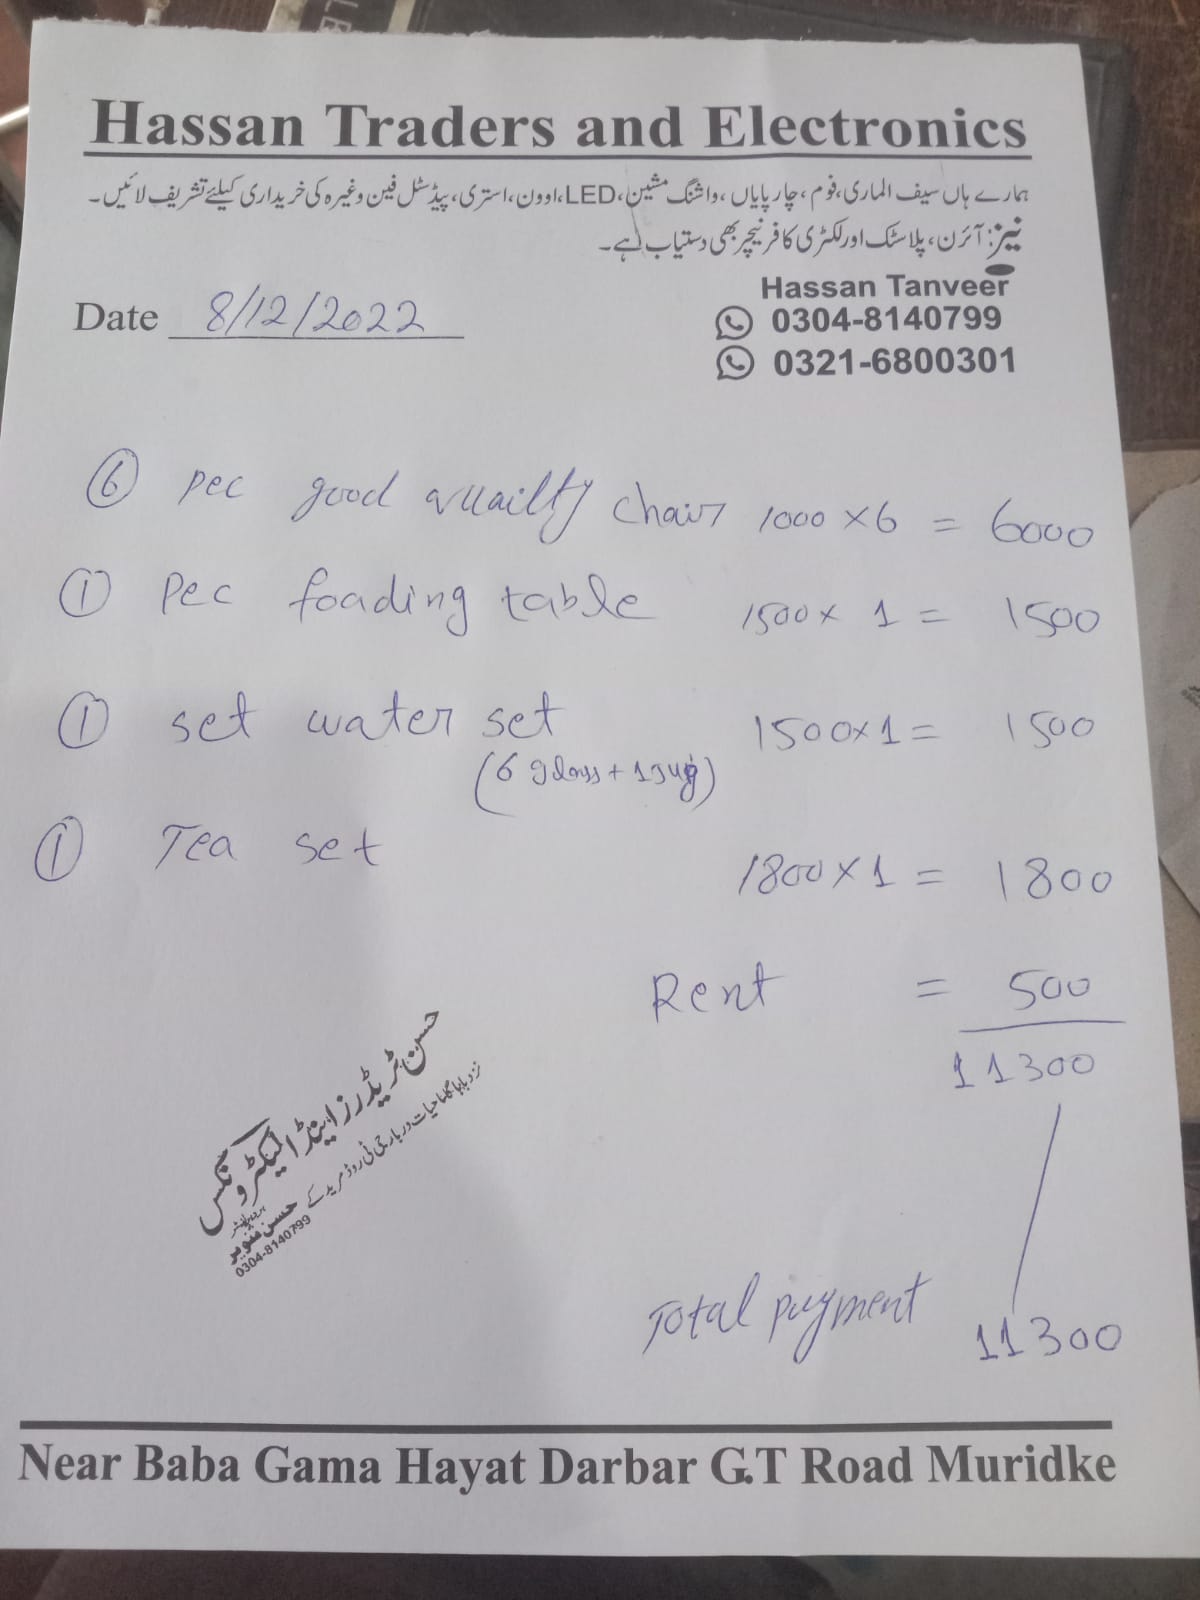 Hassan Traders and Electronics
ہمارے ہاں سیف الماری، فوم، چارپایاں، واشنگ مشین، LED، اوون، استری، پیڈسٹل فین وغیرہ کی خریداری کیلئے تشریف لائیں۔
نیز: آئرن، پلاسٹک اور لکڑی کا فرنیچر بھی دستیاب ہے۔
Hassan Tanveer
Date 8/12/2022
0304-8140799
0321-6800301
6 pec good quailty chair 1000 x 6 = 6000
1 pec foading table 1500 x 1 = 1500
1 set water set 1500 x 1 = 1500
(6 glass + 1 Jug)
1 Tea set 1800 x 1 = 1800
Rent = 500
11300
حسن ٹریڈرز اینڈ الیکٹرونکس
نزد بابا گاما حیات دربار جی ٹی روڈ مریدکے
پروپرائٹر
حسن تنویر
0304-8140799
Total payment 11300
Near Baba Gama Hayat Darbar G.T Road Muridke